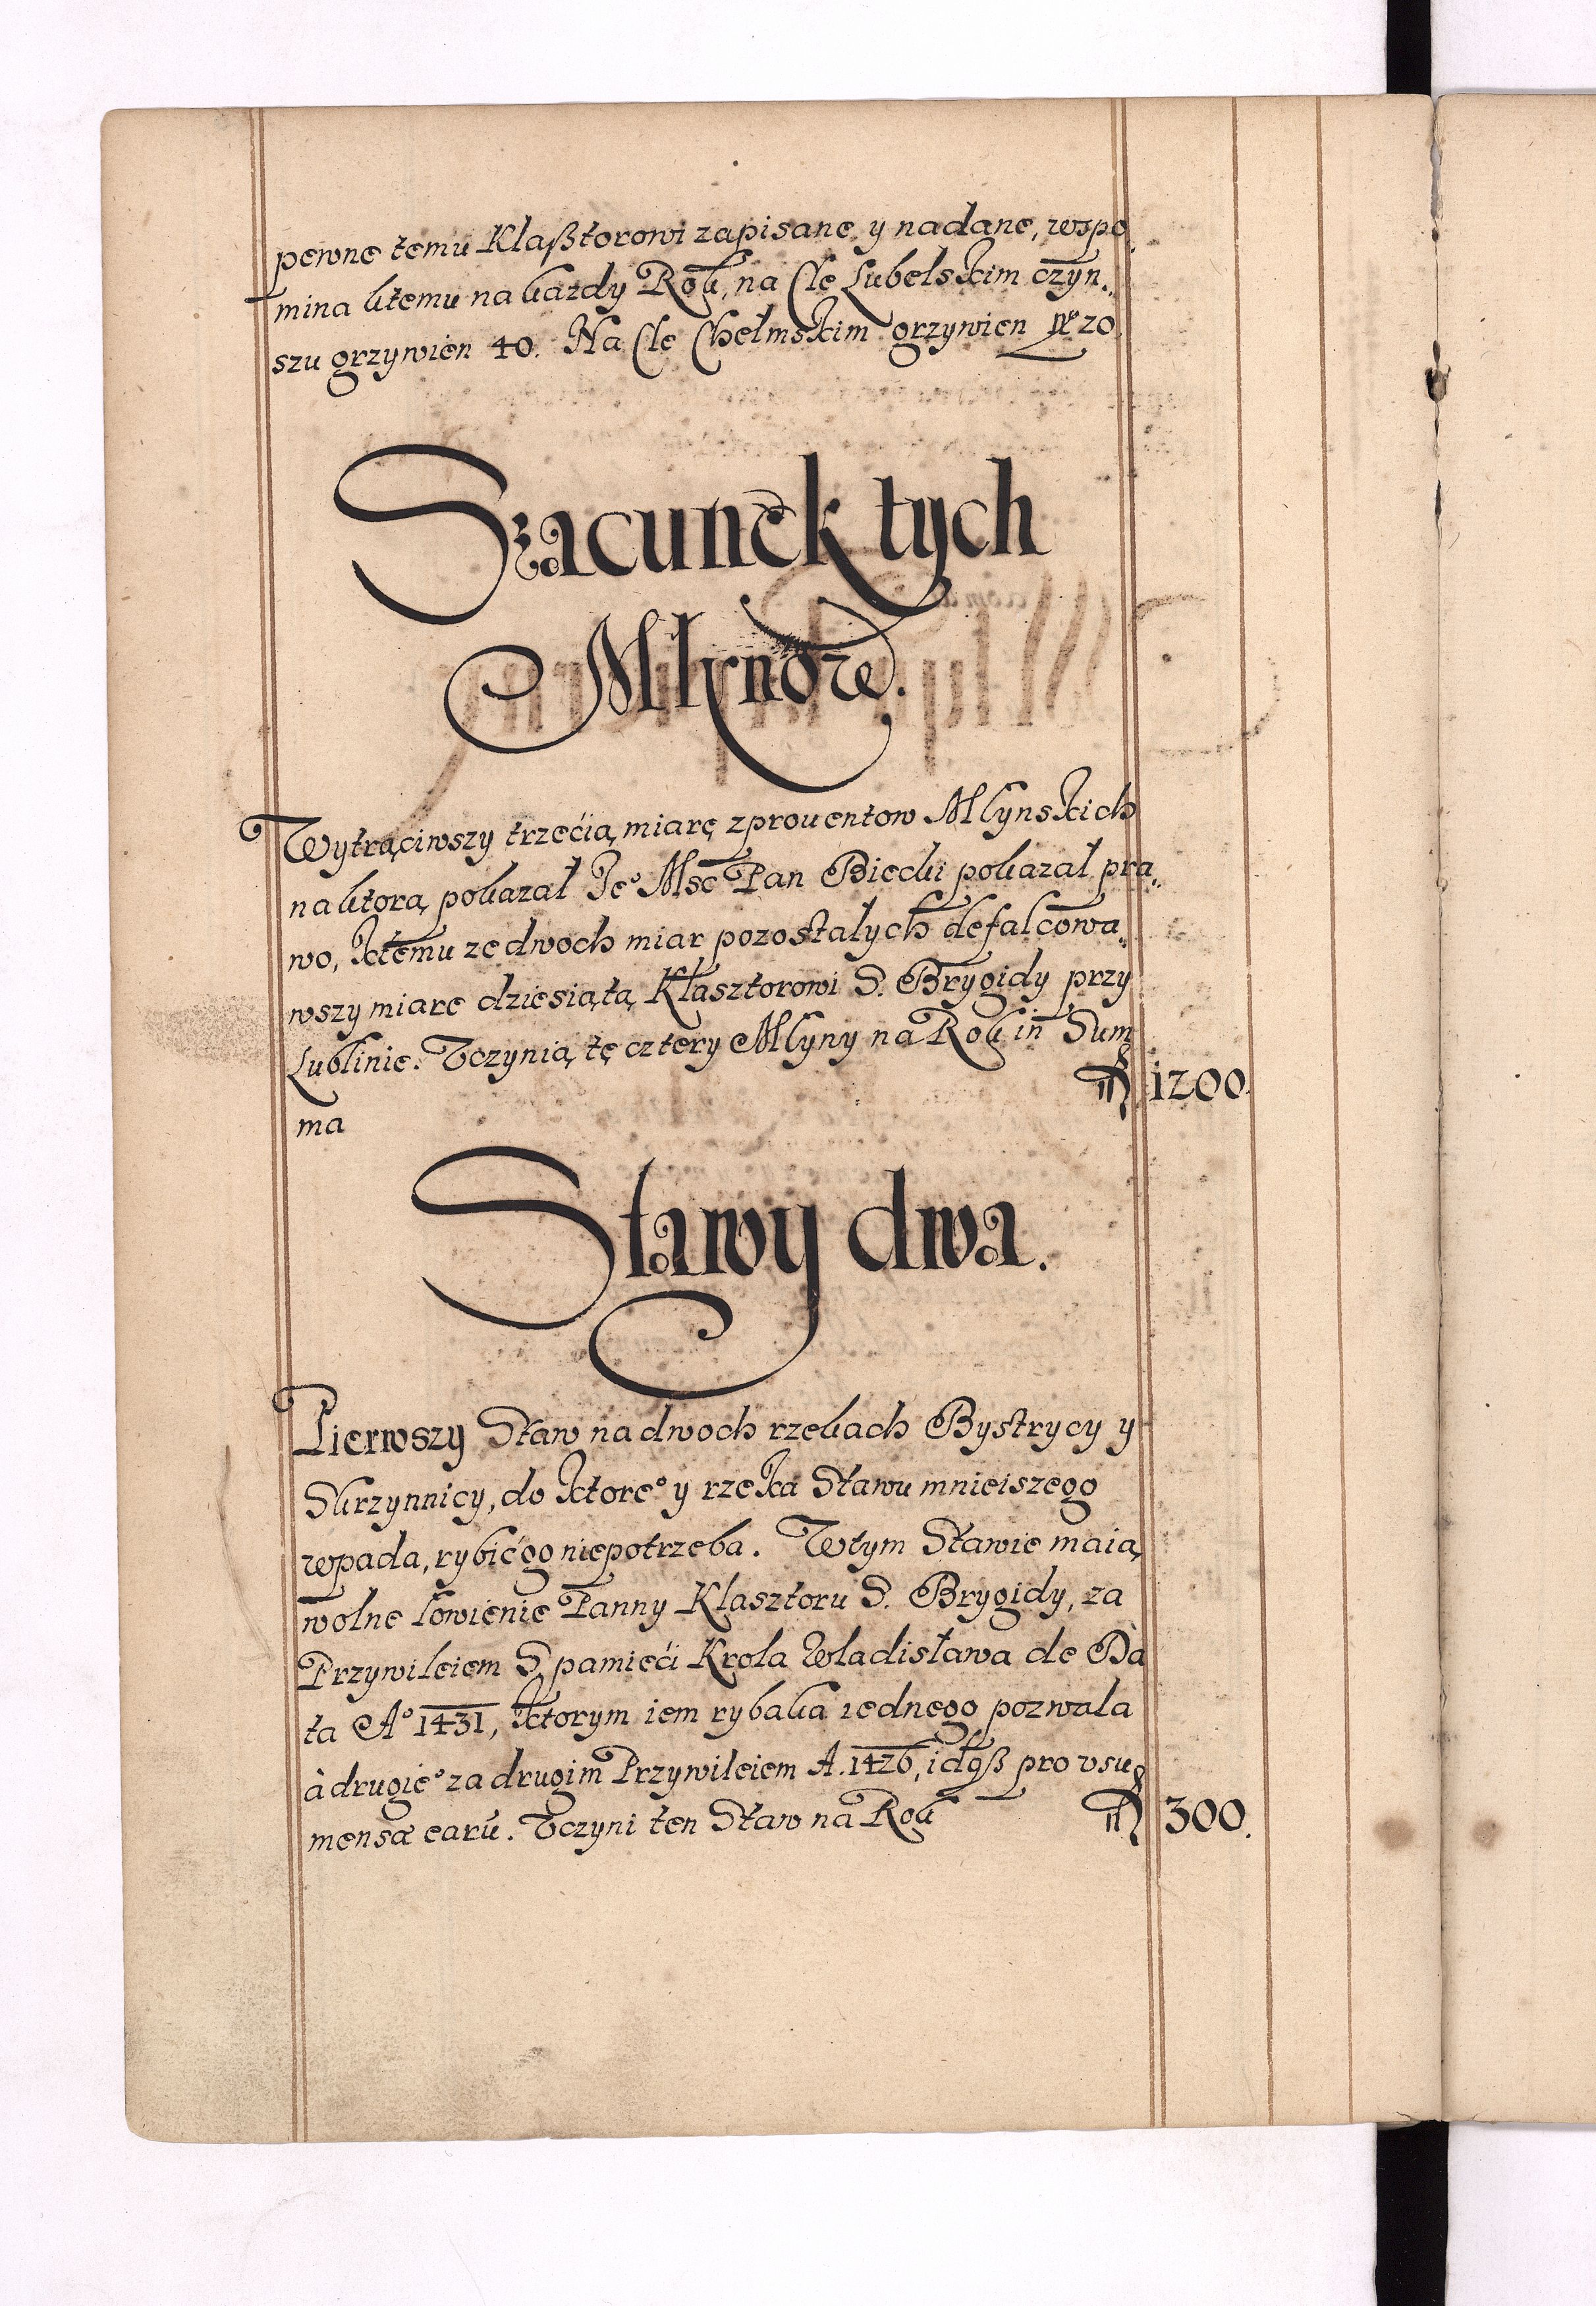 pewne temu Klaßtorowi zapisane y nadane, wspo
mina ktemu na kazdy Rok, na Cle Lubelskim czyn„
szu grzywien 40. Na Cle Chełmskim grzywien 20
Szacunek tych
Młynow.
Wytrąciwszy trzecią miarę z prouentow Młynskich
na ktorą pokazał Je° Msc Pan Biecki pokazał pra„
wo, ktemu ze dwoch miar pozostałych defalcowa„
wszy miare dziesiątą Klasztorowi S. Brygidy przy
Lublinie. Vczynią tę cztery Młyny na Rok in Sum
ma 1200.
Stawy dwa.
Pierwszy Staw na dwoch rzekach Bystrycy y
Skrzynnicy, do ktore° y rzeka Stawu mnieiszego
wpada, rybić go niepotrzeba. W tym Stawie maią
wolne łowienie Panny Klasztoru S. Brygidy, za
Przywileiem S. pamięći Krola Wladisława de Da
ta A° 1431, ktorym iem rybaka iednego pozwala
à drugie° za drugim Przywileiem A. 1426, idqß pro vsu
mensæ earū. Vczyni ten Staw na Rok 300.